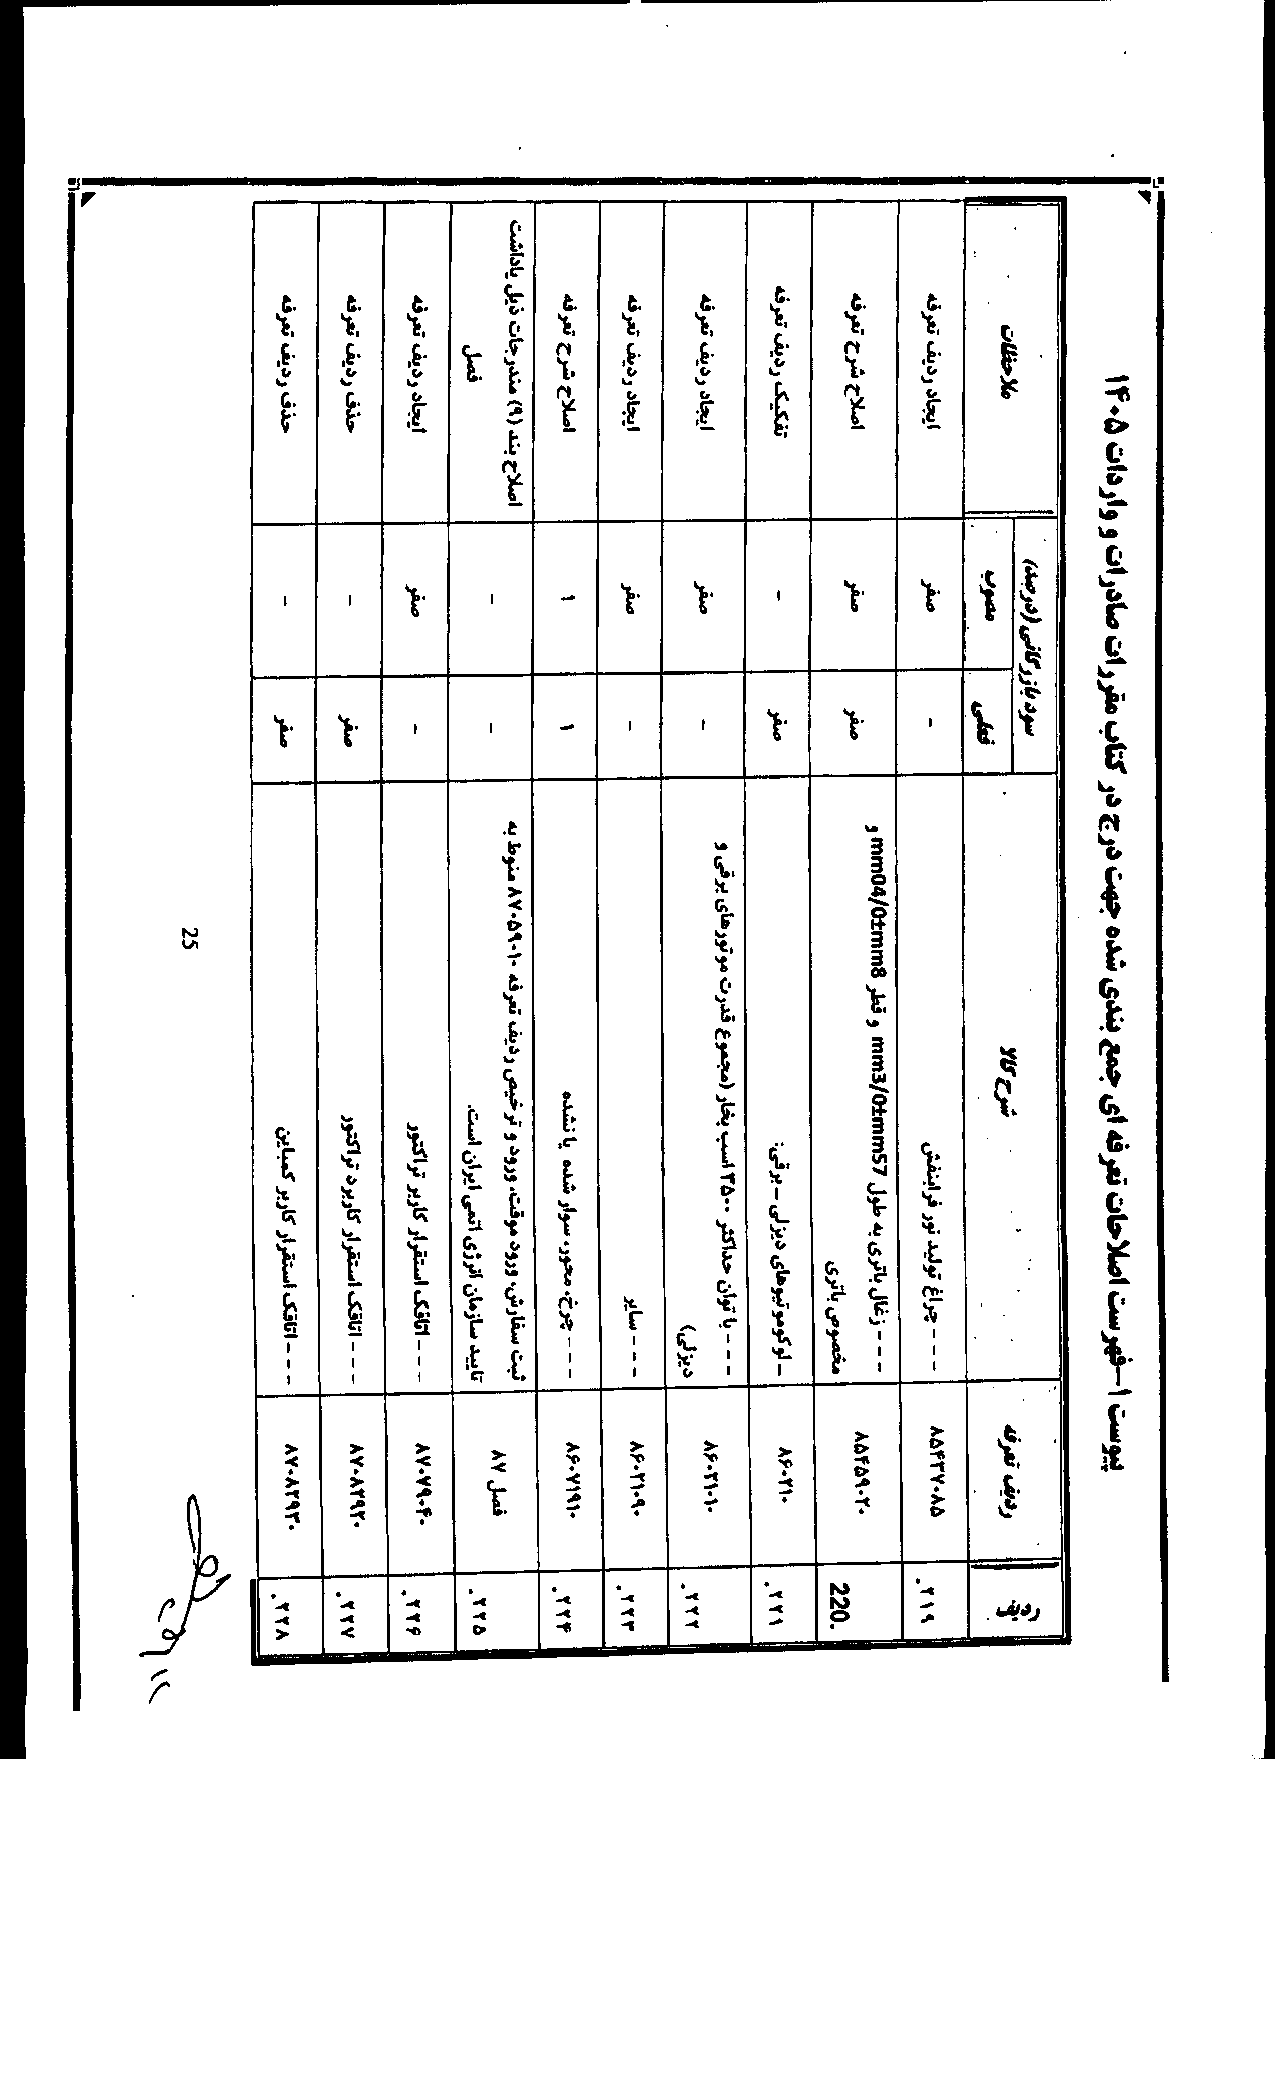 پیوست ۱-فهرست اصلاحات تعرفه ای جمع بندی شده جهت درج در کتاب مقررات صادرات و واردات ۱۴۰۵
ردیف ردیف تعرفه شرح کالا سود بازرگانی (درصد) ملاحظات
فعلی مصوب
.۲۱۹ ۸۵۴۳۷۰۸۵ - - - چراغ تولید نور فرابنفش - صفر ایجاد ردیف تعرفه
220. ۸۵۴۵۹۰۲۰ - - - زغال باتری به طول mm3/0±mm57 و قطر mm04/0±mm8 و
مخصوص باتری صفر صفر اصلاح شرح تعرفه
.۲۲۱ ۸۶۰۲۱۰ - لوکوموتیوهای دیزلی – برقی: صفر - تفکیک ردیف تعرفه
.۲۲۲ ۸۶۰۲۱۰۱۰ - - - با توان حداکثر ۳۵۰۰ اسب بخار (مجموع قدرت موتورهای برقی و
دیزلی) - صفر ایجاد ردیف تعرفه
.۲۲۳ ۸۶۰۲۱۰۹۰ - - - سایر - صفر ایجاد ردیف تعرفه
.۲۲۴ ۸۶۰۷۱۹۱۰ - - - چرخ، محور، سوار شده یا نشده ۱ ۱ اصلاح شرح تعرفه
.۲۲۵ فصل ۸۷ ثبت سفارش، ورود موقت، ورود و ترخیص ردیف تعرفه ۸۷۰۵۹۰۱۰ منوط به
تایید سازمان انرژی اتمی ایران است. - - اصلاح بند (۹) مندرجات ذیل یاداشت
فصل
.۲۲۶ ۸۷۰۷۹۰۴۰ - - - اتاقک استقرار کاربر تراکتور - صفر ایجاد ردیف تعرفه
.۲۲۷ ۸۷۰۸۲۹۲۰ - - - اتاقک استقرار کاربرد تراکتور صفر - حذف ردیف تعرفه
.۲۲۸ ۸۷۰۸۲۹۳۰ - - - اتاقک استقرار کاربر کمباین صفر - حذف ردیف تعرفه
25